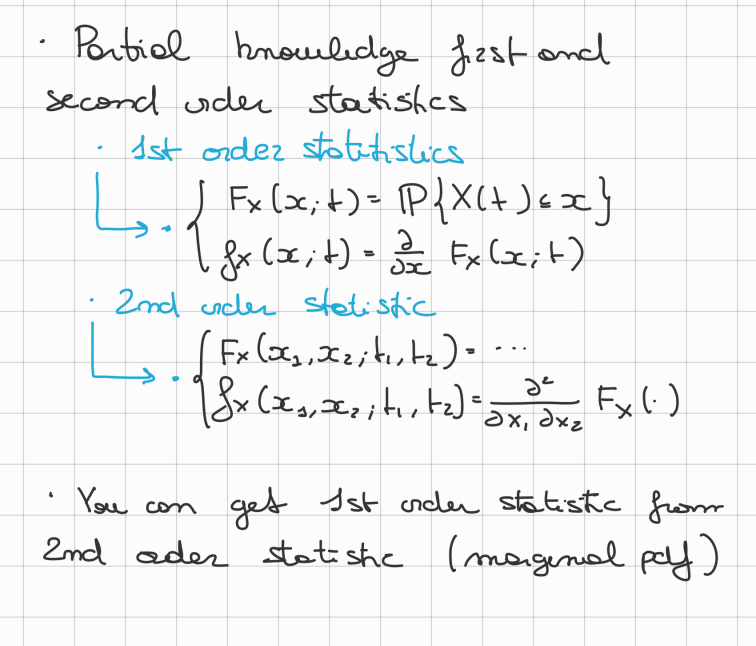 · Partial knowledge first and
second order statistics
· 1st order statitistics
F_X(x; t) = ℙ{X(t) ≤ x}
f_X(x; t) = ∂/∂x F_X(x; t)
· 2nd order statistic
F_X(x₁, x₂; t₁, t₂) = ...
f_X(x₁, x₂; t₁, t₂) = ∂²/∂x₁ ∂x₂ F_X(·)
· You can get 1st order statistic from
2nd order statistic (marginal pdf)